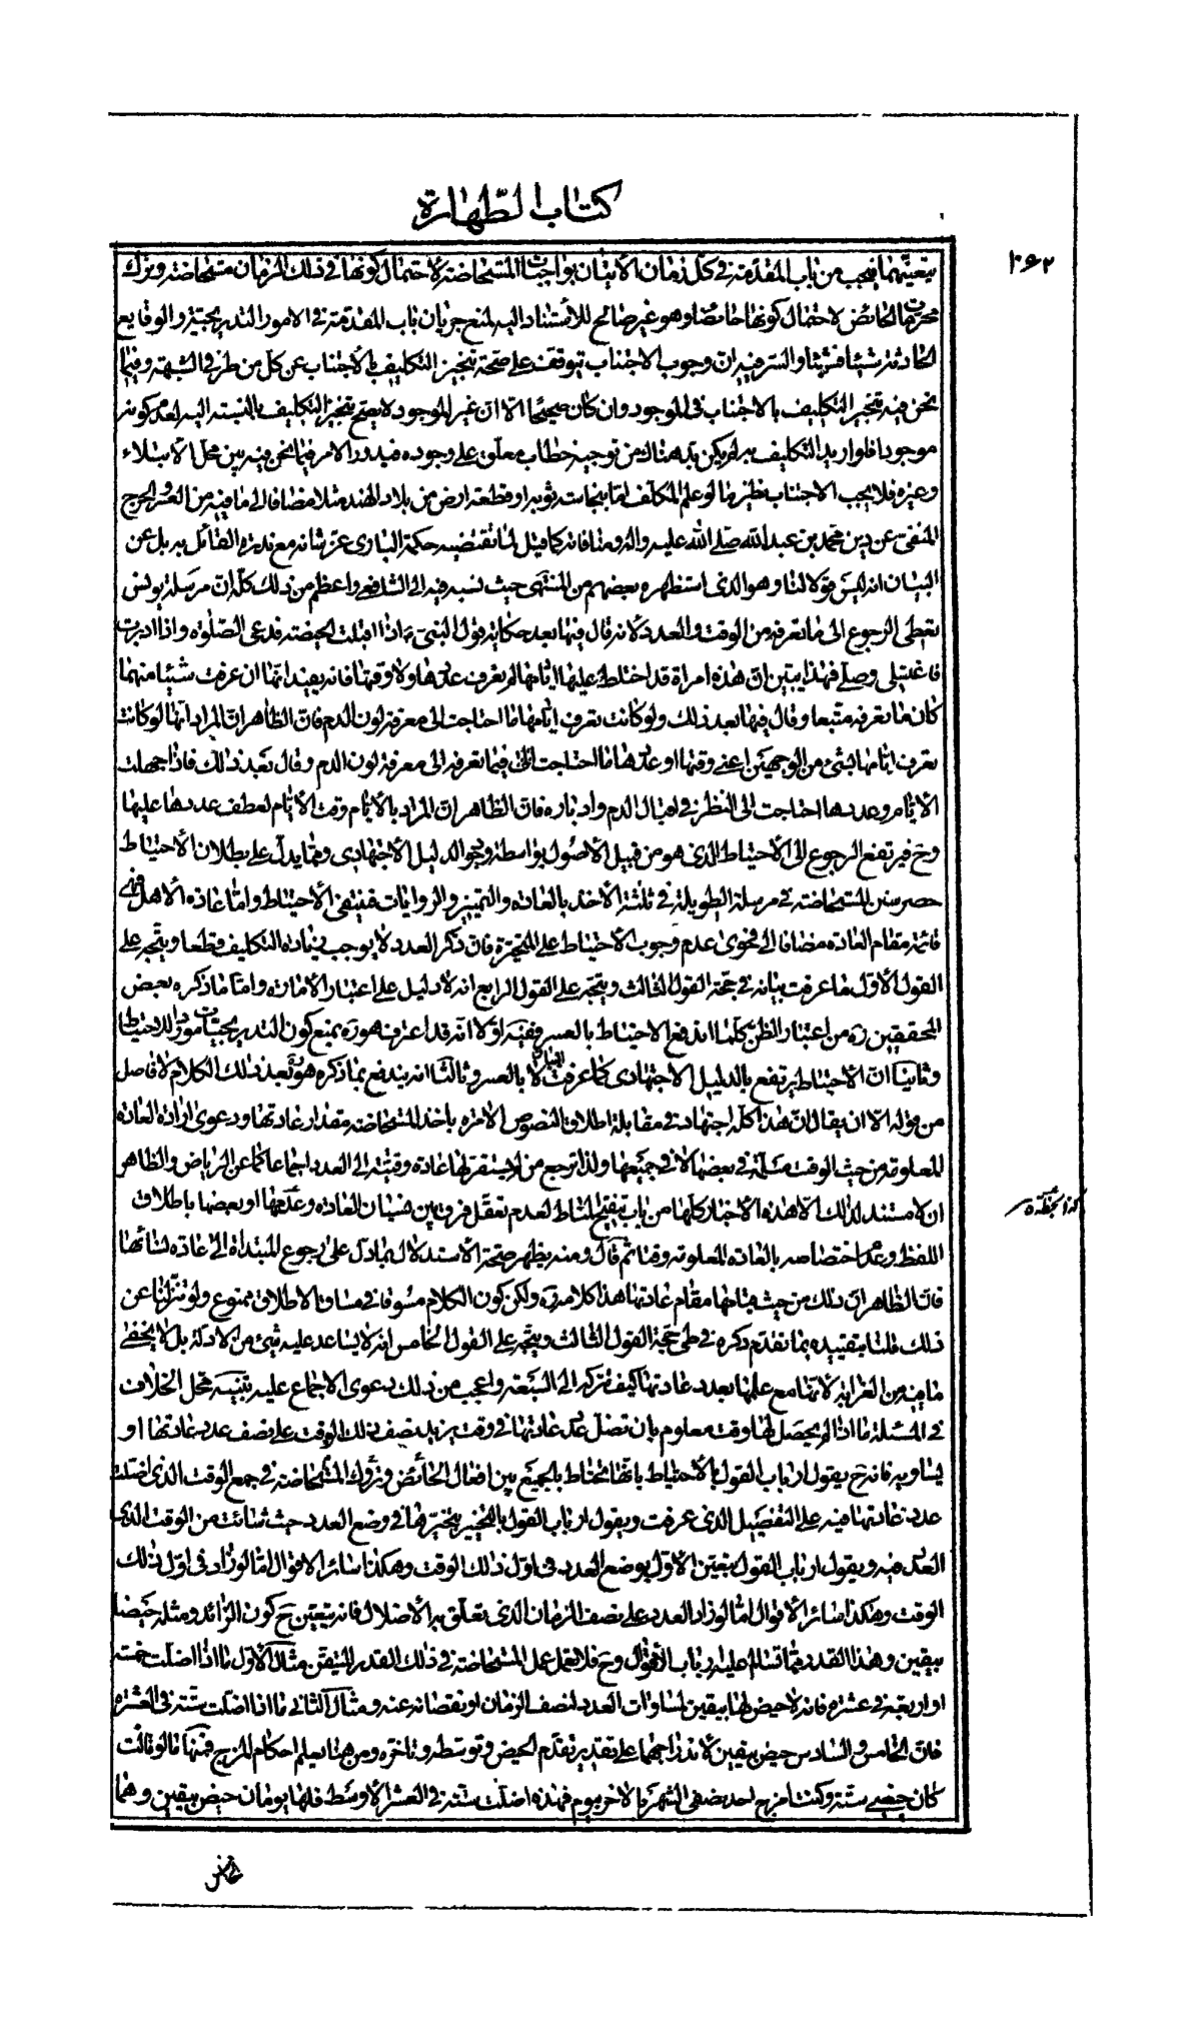 كتاب الطهارة
١٠٦٢
بتعيينهما فيجب من باب المقدمة في كل زمان الاتيان بواجبات المستحاضة لاحتمال كونها في ذلك الزمان مستحاضة وترك
محرمات الحائض لاحتمال كونها حائضا وهو غير صالح للاستناد اليه لمنع جريان باب المقدمة في الامور التدريجية والوقايع
الحادثة شيئا فشيئا والسر فيه ان وجوب الاجتناب يتوقف على صحة تنجيز التكليف بالاجتناب عن كل من طرفي الشبهة وفيما
نحن فيه تنجيز التكليف بالاجتناب في الموجود وان كان صحيحا الا ان غير الموجود لا يصح تنجيز التكليف بالنسبة اليه لعدم كونه
موجودا فلو اريد التكليف به لم يكن بد هناك من توجيه خطاب معلق على وجوده فيدور الامر فيما نحن فيه بين محل الابتلاء
وغيره فلا يجب الاجتناب نظير ما لو علم المكلف اما بنجاسة ثوبه او قطعة ارض من بلاد الهند مثلا مضافا الى ما فيه من العسر والحرج
المنفى عن دين محمد بن عبد الله صلى الله عليه واله ومنافاته كما قيل لما تقتضيه حكمة البارى عز شانه مع ندرة القائل به بل عن
البيان انه ليس قولا لنا وهو الذى استظهره بعضهم من المنتهى حيث نسبه فيه الى الشافعي واعظم من ذلك كله ان مرسلة يونس
تعطى الرجوع الى ما تعرفه من الوقت والعدد لانه قال فيها بعد حكاية قول النبي ص اذا اقبلت الحيضة فدعى الصلوة واذا ادبرت
فاغتسلي وصلي فهذا يبين ان هذه امراة قد اختلط عليها ايامها لم تعرف عددها ولا وقتها فانه يفيد انها ان عرفت شيئا منهما
كان ما تعرفه متبعا وقال فيها بعد ذلك ولو كانت تعرف ايامها ما احتاجت الى معرفة لون الدم فان الظاهر ان المراد انها لو كانت
تعرف ايامها بشئ من الوجهين اعني وقتها او عددها ما احتاجت فيما تعرفه الى معرفة لون الدم وقال بعد ذلك فاذا جهلت
الايام وعددها احتاجت الى النظر في اقبال الدم وادباره فان الظاهر ان المراد بالايام وقت الايام لعطف عددها عليها
وح فيرتفع الرجوع الى الاحتياط الذى هو من قبيل الاصول بواسطة وجود الدليل الاجتهادى ومما يدل على بطلان الاحتياط
حصر سنن المستحاضة في مرسلة الطويلة في ثلثة الاخذ بالعادة والتمييز والروايات فينتفى الاحتياط واما عادة الاهل فهي
قائمة مقام العادة مضافا الى فحوى عدم وجوب الاحتياط على المتحيرة فان ذكر العدد لا يوجب زيادة التكليف قطعا ويتجه على
القول الاول ما عرفت بيانه في حجة القول الثالث ويتجه على القول الرابع انه لا دليل على اعتبار الامارة واما ما ذكره بعض
المحققين ره من اعتبار الظن كلما اندفع الاحتياط بالعسر ففيه اولا انه قد اعترف هو ره بمنع كون التدريجيات موردا للاحتياط
وثانيا ان الاحتياط يرتفع بالدليل الاجتهادى كما عرفت لا بالعسر وثالثا انه يندفع بما ذكره هو ره بعد ذلك الكلام بلا فاصل
من قوله الا ان يقال ان هذا كله اجتهاد في مقابلة اطلاق النصوص الامرة باخذ المستحاضة مقدار عادتها ودعوى ارادة العادة
المعلومة من حيث الوقت مسلمة في بعضها لا في جميعها ولذا ترجع من لم يستقر لها عادة وقتية الى العدد اجماعا كما عن الرياض والظاهر
ان لا مستند لذلك الا هذه الاخبار كلها من باب تنقيح المناط لعدم تعقل فرق بين نسيان العادة وعدمها او بعضها باطلاق
اللفظ وعدم اختصاصه بالعادة المعلومة وقتا ثم قال ومنه يظهر صحة الاستدلال بما دل على رجوع المبتداة الى عادة نسائها
فان الظاهر ان ذلك من حيث قيامها مقام عادتها هذا كلامه ره ولكن كون الكلام مسوقا في مساق الاطلاق ممنوع ولو تنزلنا عن
ذلك قلنا بتقييده بما تقدم ذكره في طي حجة القول الثالث ويتجه على القول الخامس انه لا يساعد عليه شئ من الادلة بل لا يخفى
ما فيه من الغرابة لانها مع علمها بعدد عادتها كيف تتركه الى السبعة واعجب من ذلك دعوى الاجماع عليه تنبيه محل الخلاف
في المسئلة ما اذا لم يحصل لها وقت معلوم بان تضل عدد عادتها في وقت يزيد نصف ذلك الوقت على نصف عدد عادتها او
يساويه فانه ح يقول ارباب القول بالاحتياط بانها تحتاط بالجمع بين افعال الحائض وتروك المستحاضة في جمع الوقت الذى اضلت
عدد عادتها فيه على التفصيل الذى عرفت ويقول ارباب القول بالتخيير بتخيرها في وضع العدد حيث شائت من الوقت الذى
العدد فيه ويقول ارباب القول بتعين الاول بوضع العدد في اول ذلك الوقت وهكذا سائر الاقوال اما لو زاد في اول ذلك
الوقت وهكذا سائر الاقوال اما لو زاد العدد على نصف الزمان الذى تعلق به الاضلال فانه يتعين ح كون الزائد ومثله حيضا
بيقين وهذا القدر مما تسالم عليه ارباب الاقوال وح فلا تعمل عمل المستحاضة في ذلك القدر المتيقن مثال الاول ما اذا اضلت خمسة
او اربعة في عشرة فانه لا حيض لها بيقين لمساوات العدد لنصف الزمان او نقصانه عنه ومثال الثاني ما اذا اضلت ستة في العشرة
فان الخامس والسادس حيض بيقين لاندراجهما على تقدير تقدم الحيض وتوسطه وتاخره ومن هنا يعلم احكام المزج فمنها ما لو قالت
كان حيضى ستة وكنت امزج احد نصفى الشهر بالاخر بيوم فهذه اضلت ستة في العشر الاوسط فلها يومان حيض بيقين وهما